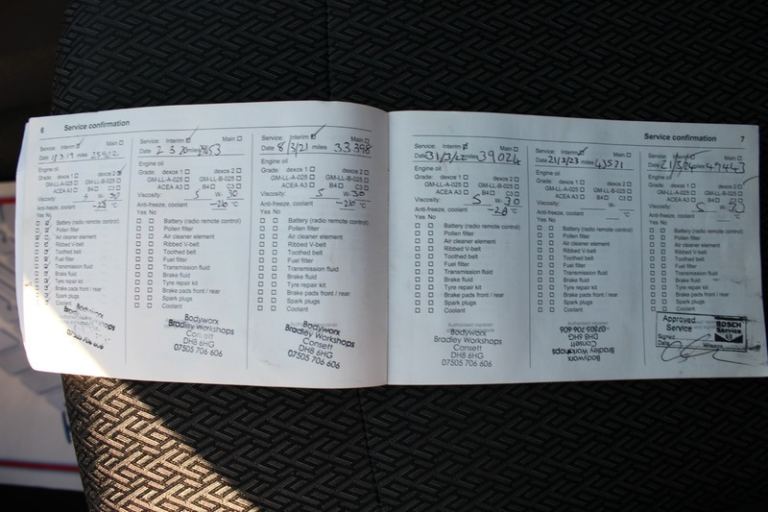 6 Service confirmation
Service: Interim Main
Date miles
Engine oil
Grade: dexos 1 dexos 2
GM-LL-A-025 GM-LL-B-025
ACEA A3 B4 C3
Viscosity: W- 30
Anti-freeze, coolant -28 °C
Yes No
Battery (radio remote control)
Pollen filter
Air cleaner element
Ribbed V-belt
Toothed belt
Fuel filter
Transmission fluid
Brake fluid
Tyre repair kit
Brake pads front / rear
Spark plugs
Coolant
Service: Interim Main
Date 2 3 20 miles
Engine oil
Grade: dexos 1 dexos 2
GM-LL-A-025 GM-LL-B-025
ACEA A3 B4 C3
Viscosity: 5 W- 30
Anti-freeze, coolant °C
Yes No
Battery (radio remote control)
Pollen filter
Air cleaner element
Ribbed V-belt
Toothed belt
Fuel filter
Transmission fluid
Brake fluid
Tyre repair kit
Brake pads front / rear
Spark plugs
Coolant
Bodyworx
Bradley Workshops
Consett
DH8 6HG
07505 706 606
Service: Interim Main
Date 8/3/21 miles 33398
Engine oil
Grade: dexos 1 dexos 2
GM-LL-A-025 GM-LL-B-025
ACEA A3 B4 C3
Viscosity: 5 W- 30
Anti-freeze, coolant °C
Yes No
Battery (radio remote control)
Pollen filter
Air cleaner element
Ribbed V-belt
Toothed belt
Fuel filter
Transmission fluid
Brake fluid
Tyre repair kit
Brake pads front / rear
Spark plugs
Coolant
Bodyworx
Bradley Workshops
Consett
DH8 6HG
07505 706 606
Service confirmation 7
Service: Interim Main
Date 31/3/22 miles 39024
Engine oil
Grade: dexos 1 dexos 2
GM-LL-A-025 GM-LL-B-025
ACEA A3 B4 C3
Viscosity: 5 W- 30
Anti-freeze, coolant -28 °C
Yes No
Battery (radio remote control)
Pollen filter
Air cleaner element
Ribbed V-belt
Toothed belt
Fuel filter
Transmission fluid
Brake fluid
Tyre repair kit
Brake pads front / rear
Spark plugs
Coolant
Bodyworx
Bradley Workshops
Consett
DH8 6HG
07505 706 606
Service: Interim Main
Date 21/3/23 miles 43571
Engine oil
Grade: dexos 1 dexos 2
GM-LL-A-025 GM-LL-B-025
ACEA A3 B4 C3
Viscosity: W-
Anti-freeze, coolant °C
Yes No
Battery (radio remote control)
Pollen filter
Air cleaner element
Ribbed V-belt
Toothed belt
Fuel filter
Transmission fluid
Brake fluid
Tyre repair kit
Brake pads front / rear
Spark plugs
Coolant
07505 706 606
DH8 6HG
Consett
Bradley Workshops
Bodyworx
Service: Interim Main
Date miles
Engine oil
Grade: dexos 1 dexos 2
GM-LL-A-025 GM-LL-B-025
ACEA A3 B4 C3
Viscosity: 5 W- 30
Anti-freeze, coolant °C
Yes No
Battery (radio remote control)
Pollen filter
Air cleaner element
Ribbed V-belt
Toothed belt
Fuel filter
Transmission fluid
Brake fluid
Tyre repair kit
Brake pads front / rear
Spark plugs
Coolant
Approved
Service
BOSCH
Service
Signed
Date Mileage